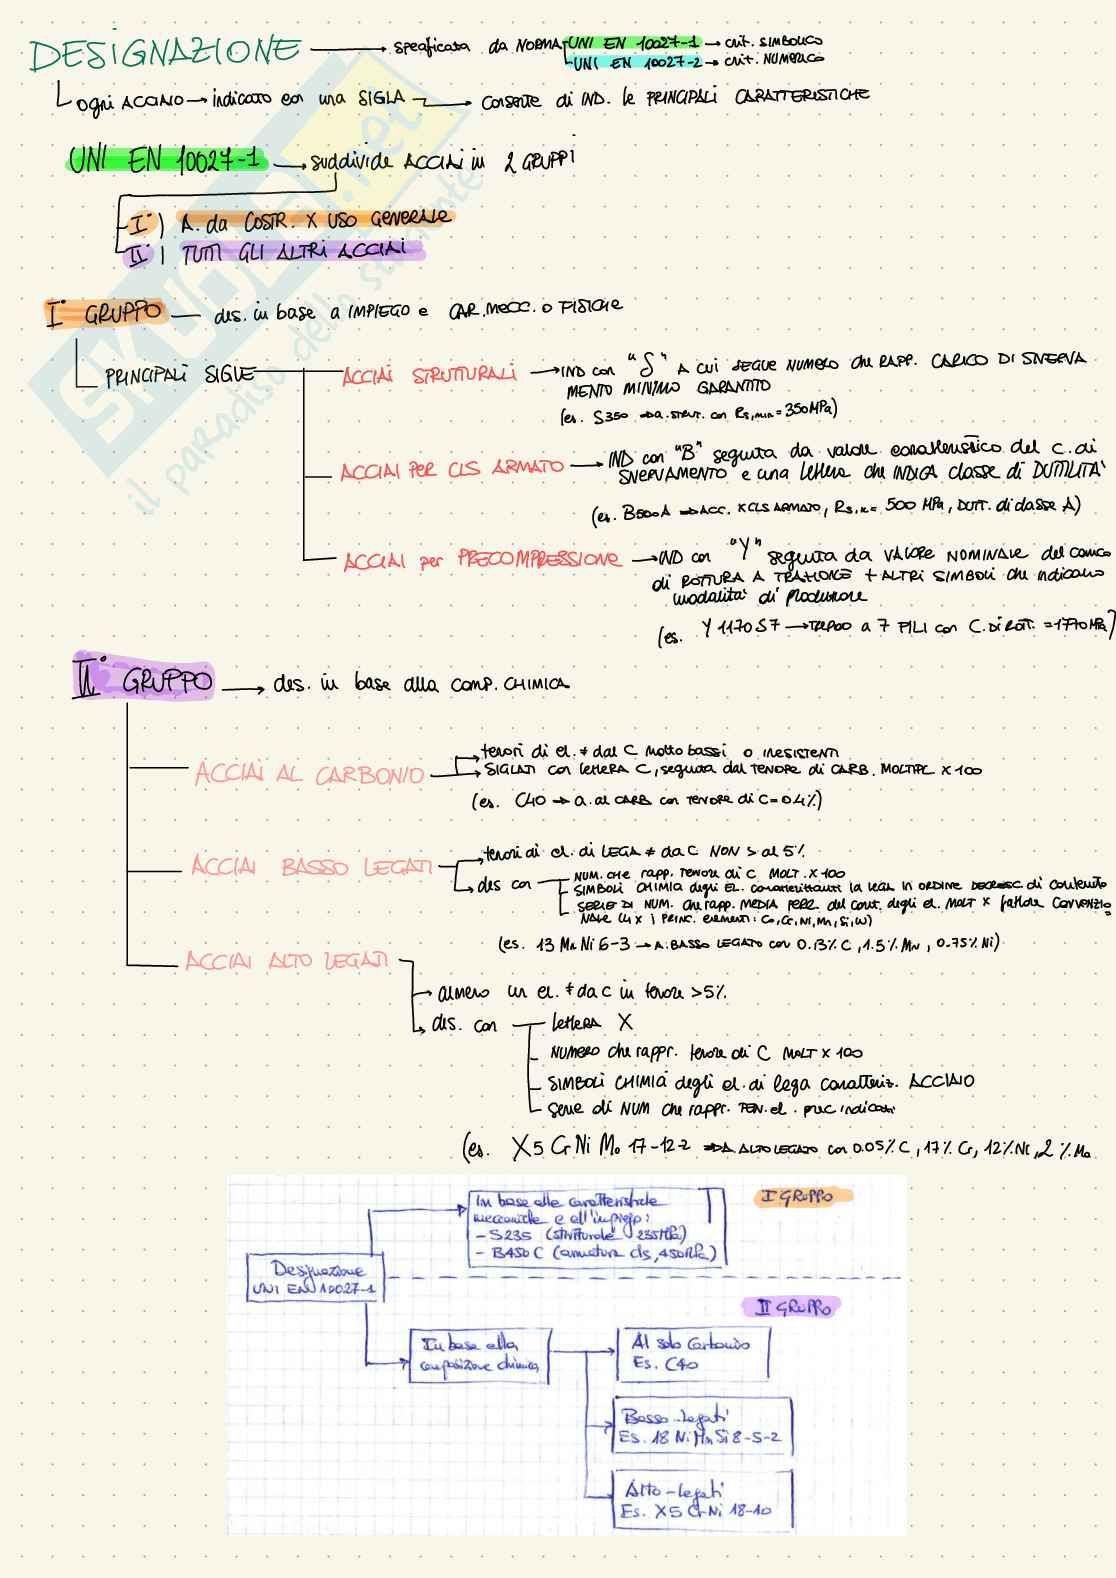 DESIGNAZIONE → specificata da NORMA UNI EN 10027-1 → crit. SIMBOLICO
UNI EN 10027-2 → crit. NUMERICO
ogni ACCIAIO → indicato con una SIGLA → consente di IND. le PRINCIPALI CARATTERISTICHE
UNI EN 10027-1 → suddivide ACCIAI in 2 GRUPPI
I°) A. da COSTR. X USO GENERALE
II°) TUTTI GLI ALTRI ACCIAI
I° GRUPPO — des. in base a IMPIEGO e CAR. MECC. O FISICHE
PRINCIPALI SIGLE
ACCIAI STRUTTURALI → IND con "S" A CUI SEGUE NUMERO che RAPP. CARICO DI SNERVA
MENTO MINIMO GARANTITO
(es. S350 ⇒ a. strut. con Rs,min = 350 MPa)
ACCIAI PER CLS ARMATO → IND con "B" seguita da valore caratteristico del c. di
SNERVAMENTO e una lettera che INDICA classe di DUTTILITÀ
(es. B500A ⇒ ACC. X CLS ARMATO, Rs,k = 500 MPa, DUTT. di classe A)
ACCIAI per PRECOMPRESSIONE → IND con "Y" seguita da VALORE NOMINALE del carico
di ROTTURA A TRAZIONE + ALTRI SIMBOLI che indicano
modalità di produzione
(es. Y 1170 S7 → TREFOLO a 7 FILI con C. DI ROTT. = 1770 MPa)
II° GRUPPO → des. in base alla COMP. CHIMICA
ACCIAI AL CARBONIO
tenori di el. ≠ dal C molto bassi o INESISTENTI
SIGLATI con lettera C, seguita dal TENORE di CARB. MOLTIPL X 100
(es. C40 ⇒ a. al CARB con TENORE di C = 0.4%)
ACCIAI BASSO LEGATI
tenori di el. di LEGA ≠ da C NON > al 5%
des con
NUM. che rapp. TENORE di C MOLT. X 100
SIMBOLI CHIMICI degli EL. caratterizzanti la lega IN ORDINE DECRESC. di contenuto
SERIE DI NUM. che rapp. MEDIA PERC. del cont. degli el. MOLT X fattore CONVENZIO
NALE (4 X i PRINC. elementi: Co, Cr, Ni, Mn, Si, W)
(es. 13 Mn Ni 6-3 → A. BASSO LEGATO con 0.13% C, 1.5% Mn, 0.75% Ni)
ACCIAI ALTO LEGATI
almeno un el. ≠ da C in tenore > 5%
des. con
lettera X
NUMERO che rappr. tenore di C MOLT X 100
SIMBOLI CHIMICI degli el. di lega caratteriz. ACCIAIO
serie di NUM che rappr. TEN. el. prec indicati
(es. X5 Cr Ni Mo 17-12-2 ⇒ A ALTO LEGATO con 0.05% C, 17% Cr, 12% Ni, 2% Mo
In base alle caratteristiche
meccaniche e all'impiego:
- S235 (strutturale 235 MPa)
- B450 C (armatura cls, 450 MPa)
I GRUPPO
Designazione
UNI EN 10027-1
II GRUPPO
In base alla
composizione chimica
Al solo Carbonio
Es. C40
Basso-legati
Es. 18 NiMnSi 8-5-2
Alto-legati
Es. X5 CrNi 18-10
SKUOLA.net
il paradiso dello studente